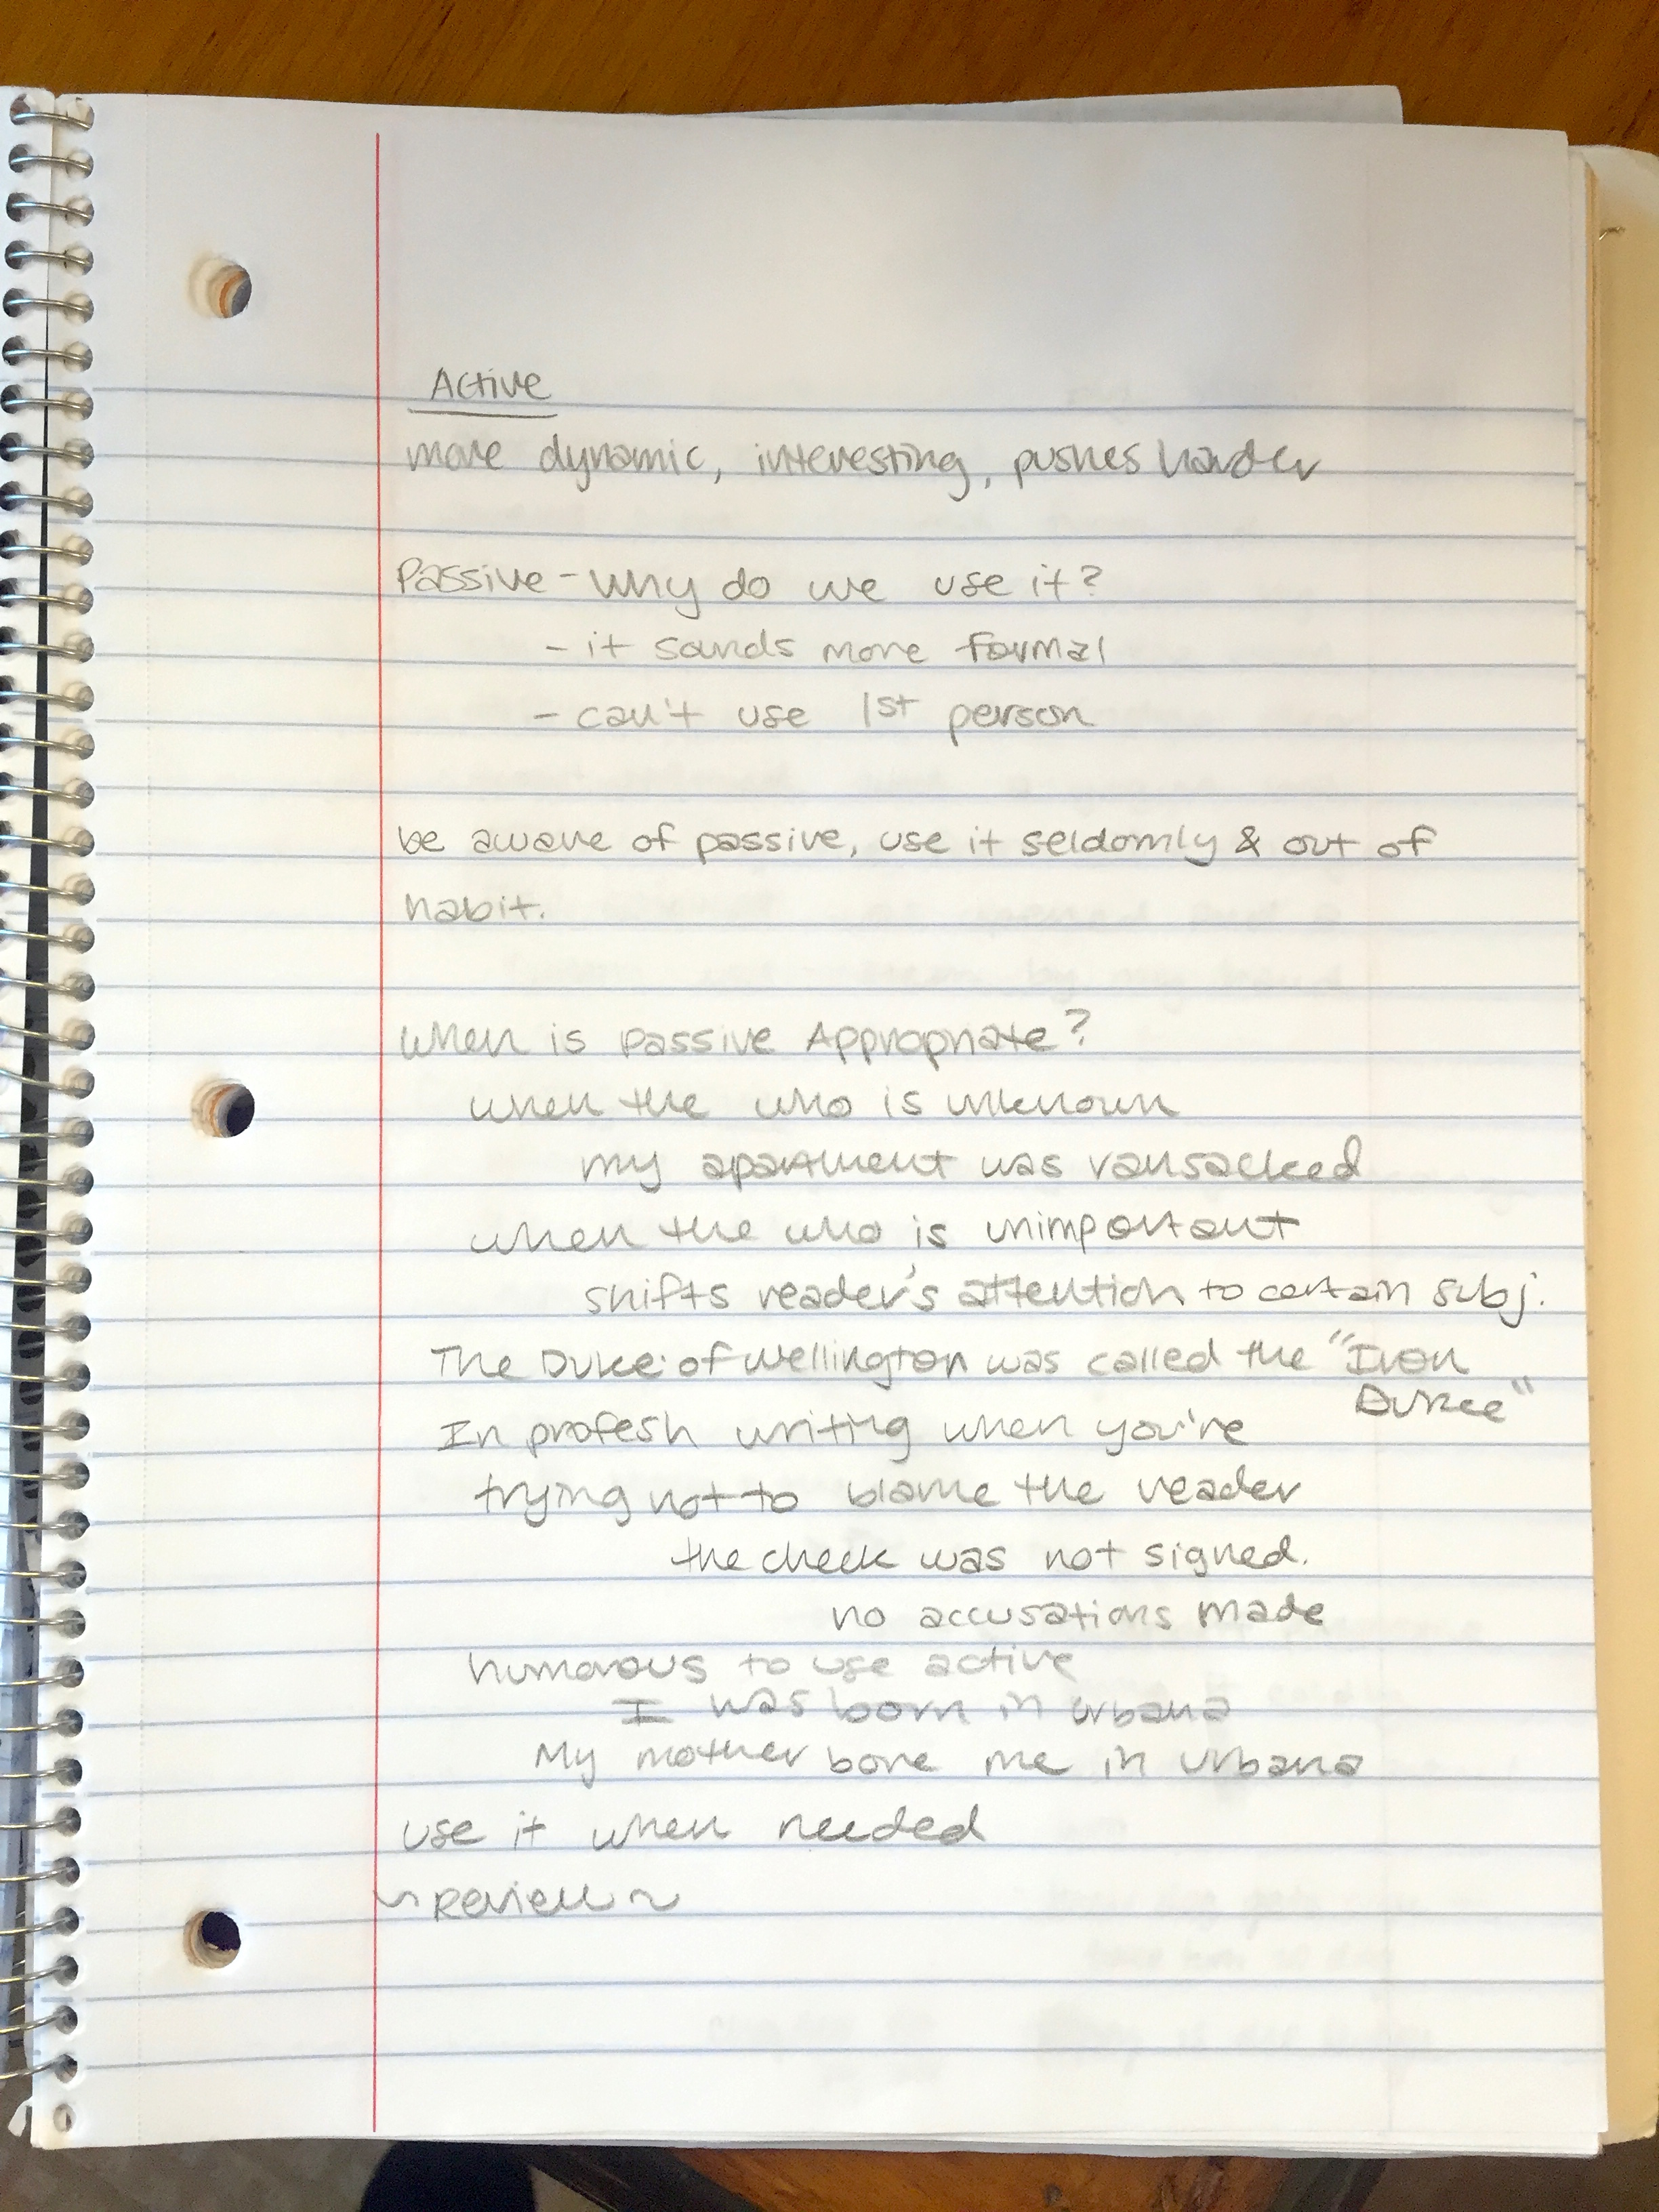 Active
more dynamic, interesting, pushes harder
Passive - why do we use it?
- it sounds more formal
- can't use 1st person
be aware of passive, use it seldomly & out of
habit.
when is passive Appropriate?
when the who is unknown
my apartment was ransacked
when the who is unimportant
shifts reader's attention to certain subj.
The Duke of Wellington was called the "Iron
Duke"
In profesh writing when you're
trying not to blame the reader
the check was not signed.
no accusations made
humorous to use active
I was born in urbana
My mother bore me in urbana
use it when needed
~ Review ~